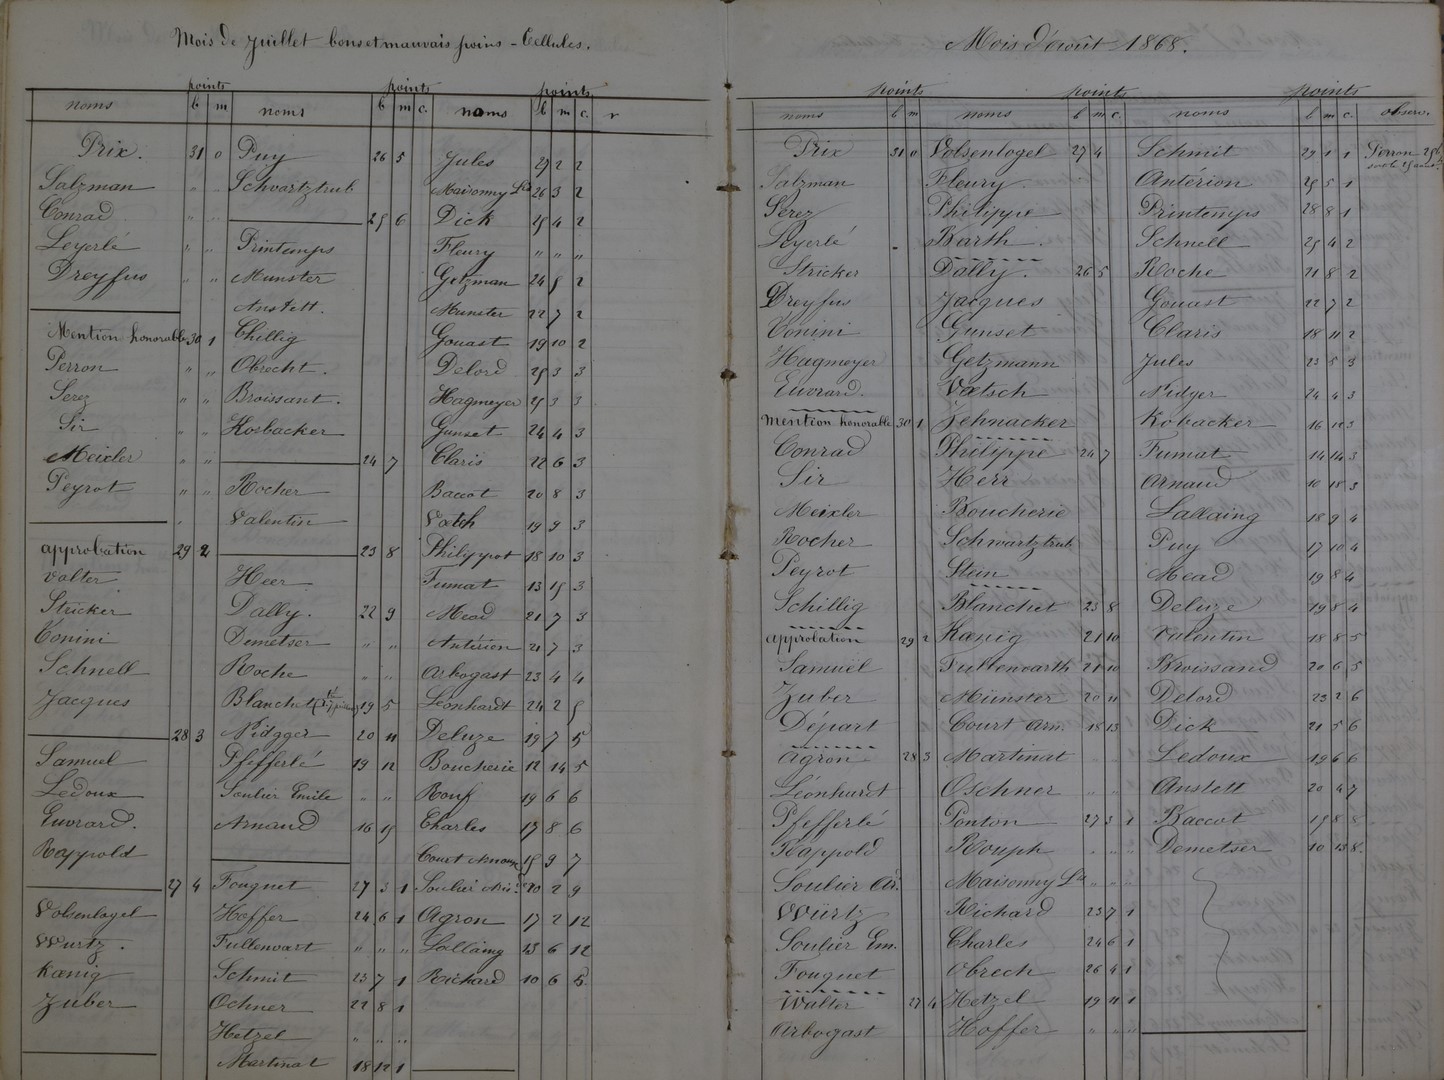 Mois de Juillet bons et mauvais poins - Cellules.
points points points
noms b m noms b m c. noms b m c. r
Prix. 31 0 Puy 26 5 Jules 27 2 2
Salzman " " Schvartztrub Maisonny Ld 26 3 2
Conrad " " 25 6 Dick 25 4 2
Leyerlé " " Printemps Fleury " " "
Dreyfus " " Munster Getzman 24 5 2
Anstett. Munster 22 7 2
Mention honorable 30 1 Chillig Gouast 19 10 2
Perron " " Obrecht. Delord 25 3 3
Serez " " Broissant. Hagmeyer 25 3 3
Sir " " Kosbacker Gunset 24 4 3
Meixler " " 24 7 Claris 22 6 3
Peyrot " " Rocher Baccot 20 8 3
Valentin Vœtsh 19 9 3
approbation 29 2 23 8 Philippot 18 10 3
Valter Heer Fumat 13 15 3
Stricker Dally. 22 9 Mead 21 7 3
Conini Demetser " " Antérion 21 7 3
Schnell Roche " " Arbogast 23 4 4
Jacques Blanchet 19 5 Leonhardt 24 2 5
28 3 Nidgger 20 11 Deluze 19 7 5
Samuel Pfefferlé 19 12 Boucherie 12 14 5
Ledoux Soulier Emile " " Rouf 19 6 6
Euvrard. Arnaud 16 15 Charles 17 8 6
Rappold Court Arnoux 15 9 7
27 4 Fouguet 27 3 1 Soulier 20 2 9
Volsenlogel Hoffer 24 6 1 Agron 17 2 12
Wurtz. Fullenvart " " " Lallaing 13 6 12
Kœnig Schmit 23 7 1 Richard 10 6 5
Zuber Ochner 22 8 1
Hetzel " " "
Martinat 18 12 1
Mois d'août 1868.
points points points
noms b m noms b m c. noms b m c. observ.
Prix 31 0 Volsenlogel 27 4 Schmit 29 1 1 Perron
Salzman Fleury Antérion 25 5 1
Serez Philippe Printemps 28 8 1
Leyerlé Barth. Schnell 25 4 2
Stricker Dally. 26 5 Roche 21 8 2
Dreyfus Jacques Gouast 22 7 2
Conini Gunset Claris 18 11 2
Hagmeyer Getzmann Jules 23 5 3
Euvrard. Vœtsch Nidger 24 4 3
Mention honorable 30 1 Zehnacker Kobacker 16 12 3
Conrad Philippe 24 7 Fumat 14 14 3
Sir Herr Arnaud 10 18 3
Meixler Boucherie Lallaing 18 9 4
Rocher Schwartztrub Puy 17 10 4
Peyrot Stein Mead 19 8 4
Schillig Blanchet 23 8 Deluze 19 8 4
approbation 29 2 Kœnig 21 10 Valentin 18 8 5
Samuël Fullenvarth 21 10 Broissand 20 6 5
Zuber Münster 20 11 Delord 23 2 6
Départ Court Arn. 18 13 Dick 21 5 6
Agron 28 3 Martinat " " Ledoux 19 6 6
Léonhardt Oschner " " Anstett 20 4 7
Pfefferlé Ponton 27 3 1 Baccot 15 8 8
Rappold Rouph " " " Demetser 10 13 8.
Soulier Ar. Maisonny Ld " " "
Würtz Richard 23 7 1
Soulier Em. Charles 24 6 1
Fouguet Obrech 26 4 1
Walter 27 4 Hetzel 19 11 1
Arbogast Hoffer " " "